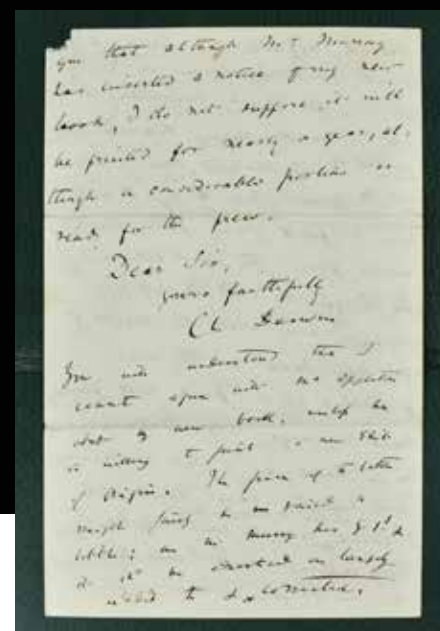 you that although Mr Murray
has inserted a notice of my new
book, I do not suppose it will
be printed for nearly a year, al-
though a considerable portion is
ready for the press.
Dear Sir,
yours faithfully
Ch. Darwin
You will understand that I
cannot agree with Mr Appleton
about my new book, unless he
is willing to print a new Edit
of Origin. The price of the latter
might fairly be raised a
little; as Mr Murray has
it will be largely
added to & corrected.